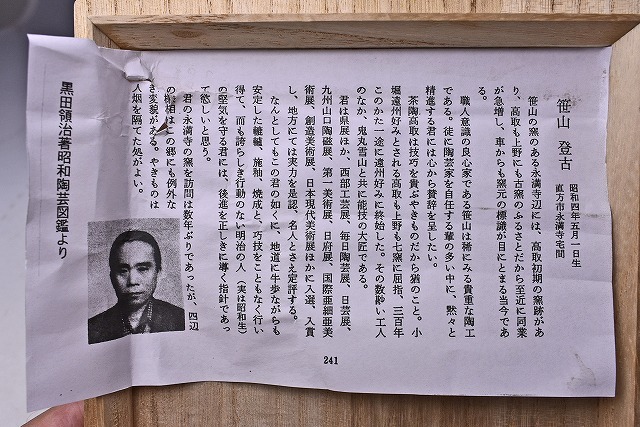 笹山 登古
昭和四年五月一日生
直方市永満寺宅間
笹山の窯のある永満寺辺には、高取初期の窯跡があ
り、高取も上野にも古窯のふるさとだから至近に同業
が急増し、車からも窯元の標識が目にとまる当今であ
る。
職人意識の良心家である笹山は稀にみる貴重な陶工
である。徒に陶芸家を自任する輩の多い中に、黙々と
精進する君には心から賛辞を呈したい。
茶陶高取は技巧を貴ぶやきものだから猶のこと。小
堀遠州好みとされる高取も上野も七窯に屈指、三百年
このかた一途に遠州好みに終始した。その数尠い工人
のなか、鬼丸雪山と共に能技の大匠である。
君は県展ほか、西部工芸展、毎日陶芸展、日芸展、
九州山口陶磁展、第一美術展、日府展、国際亜細亜美
術展、創造美術展、日本現代美術展ほかに入選、入賞
し、地方にては実力を是認、名人とさえ定評する。
なんとしてもこの君の如くに、地道に牛歩ながらも
安定した轆轤、施釉、焼成と、巧技をこともなく行い
得て、而も誇らしき行動のない明治の人（実は昭和生）
の空気を守る君には、後進を正しきに導く指針であっ
て欲しいと思う。
君の永満寺の窯を訪問は数年ぶりであったが、四辺
の様相はこの郷にも例外な
き変貌がある。やきものは
人烟を隔てた処がよい。
241
黒田領治著昭和陶芸図鑑より